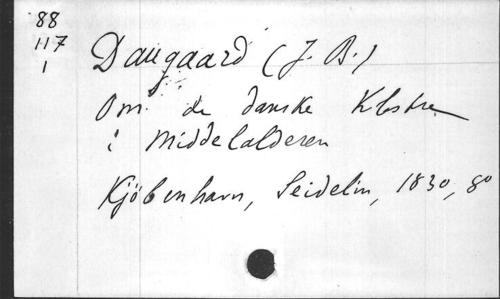 88
117
1
Daugaard (J. B.)
Om de danske Klostre
i Middelalderen
Kjöbenhavn, Seidelin, 1830, 8o